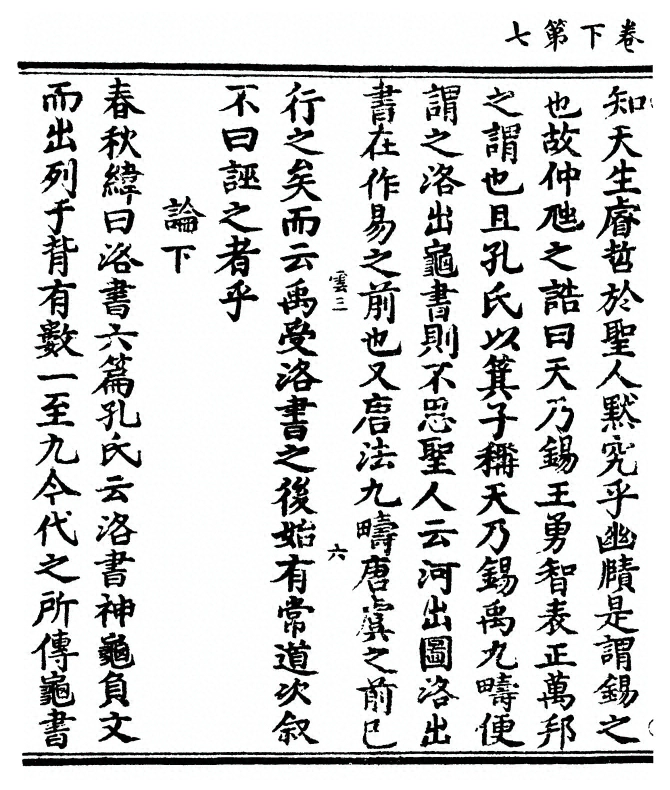 七第下卷
知天生睿哲於聖人默究乎幽賾是謂錫之
也故仲虺之誥曰天乃錫王勇智表正萬邦
之謂也且孔氏以箕子稱天乃錫禹九疇便
謂之洛出龜書則不思聖人云河出圖洛出
書在作易之前也又唐法九疇唐虞之前已
雲三
六
行之矣而云禹受洛書之後始有常道次叙
不曰誣之者乎
論下
春秋緯曰洛書六篇孔氏云洛書神龜負文
而出列于背有數一至九今代之所傳龜書